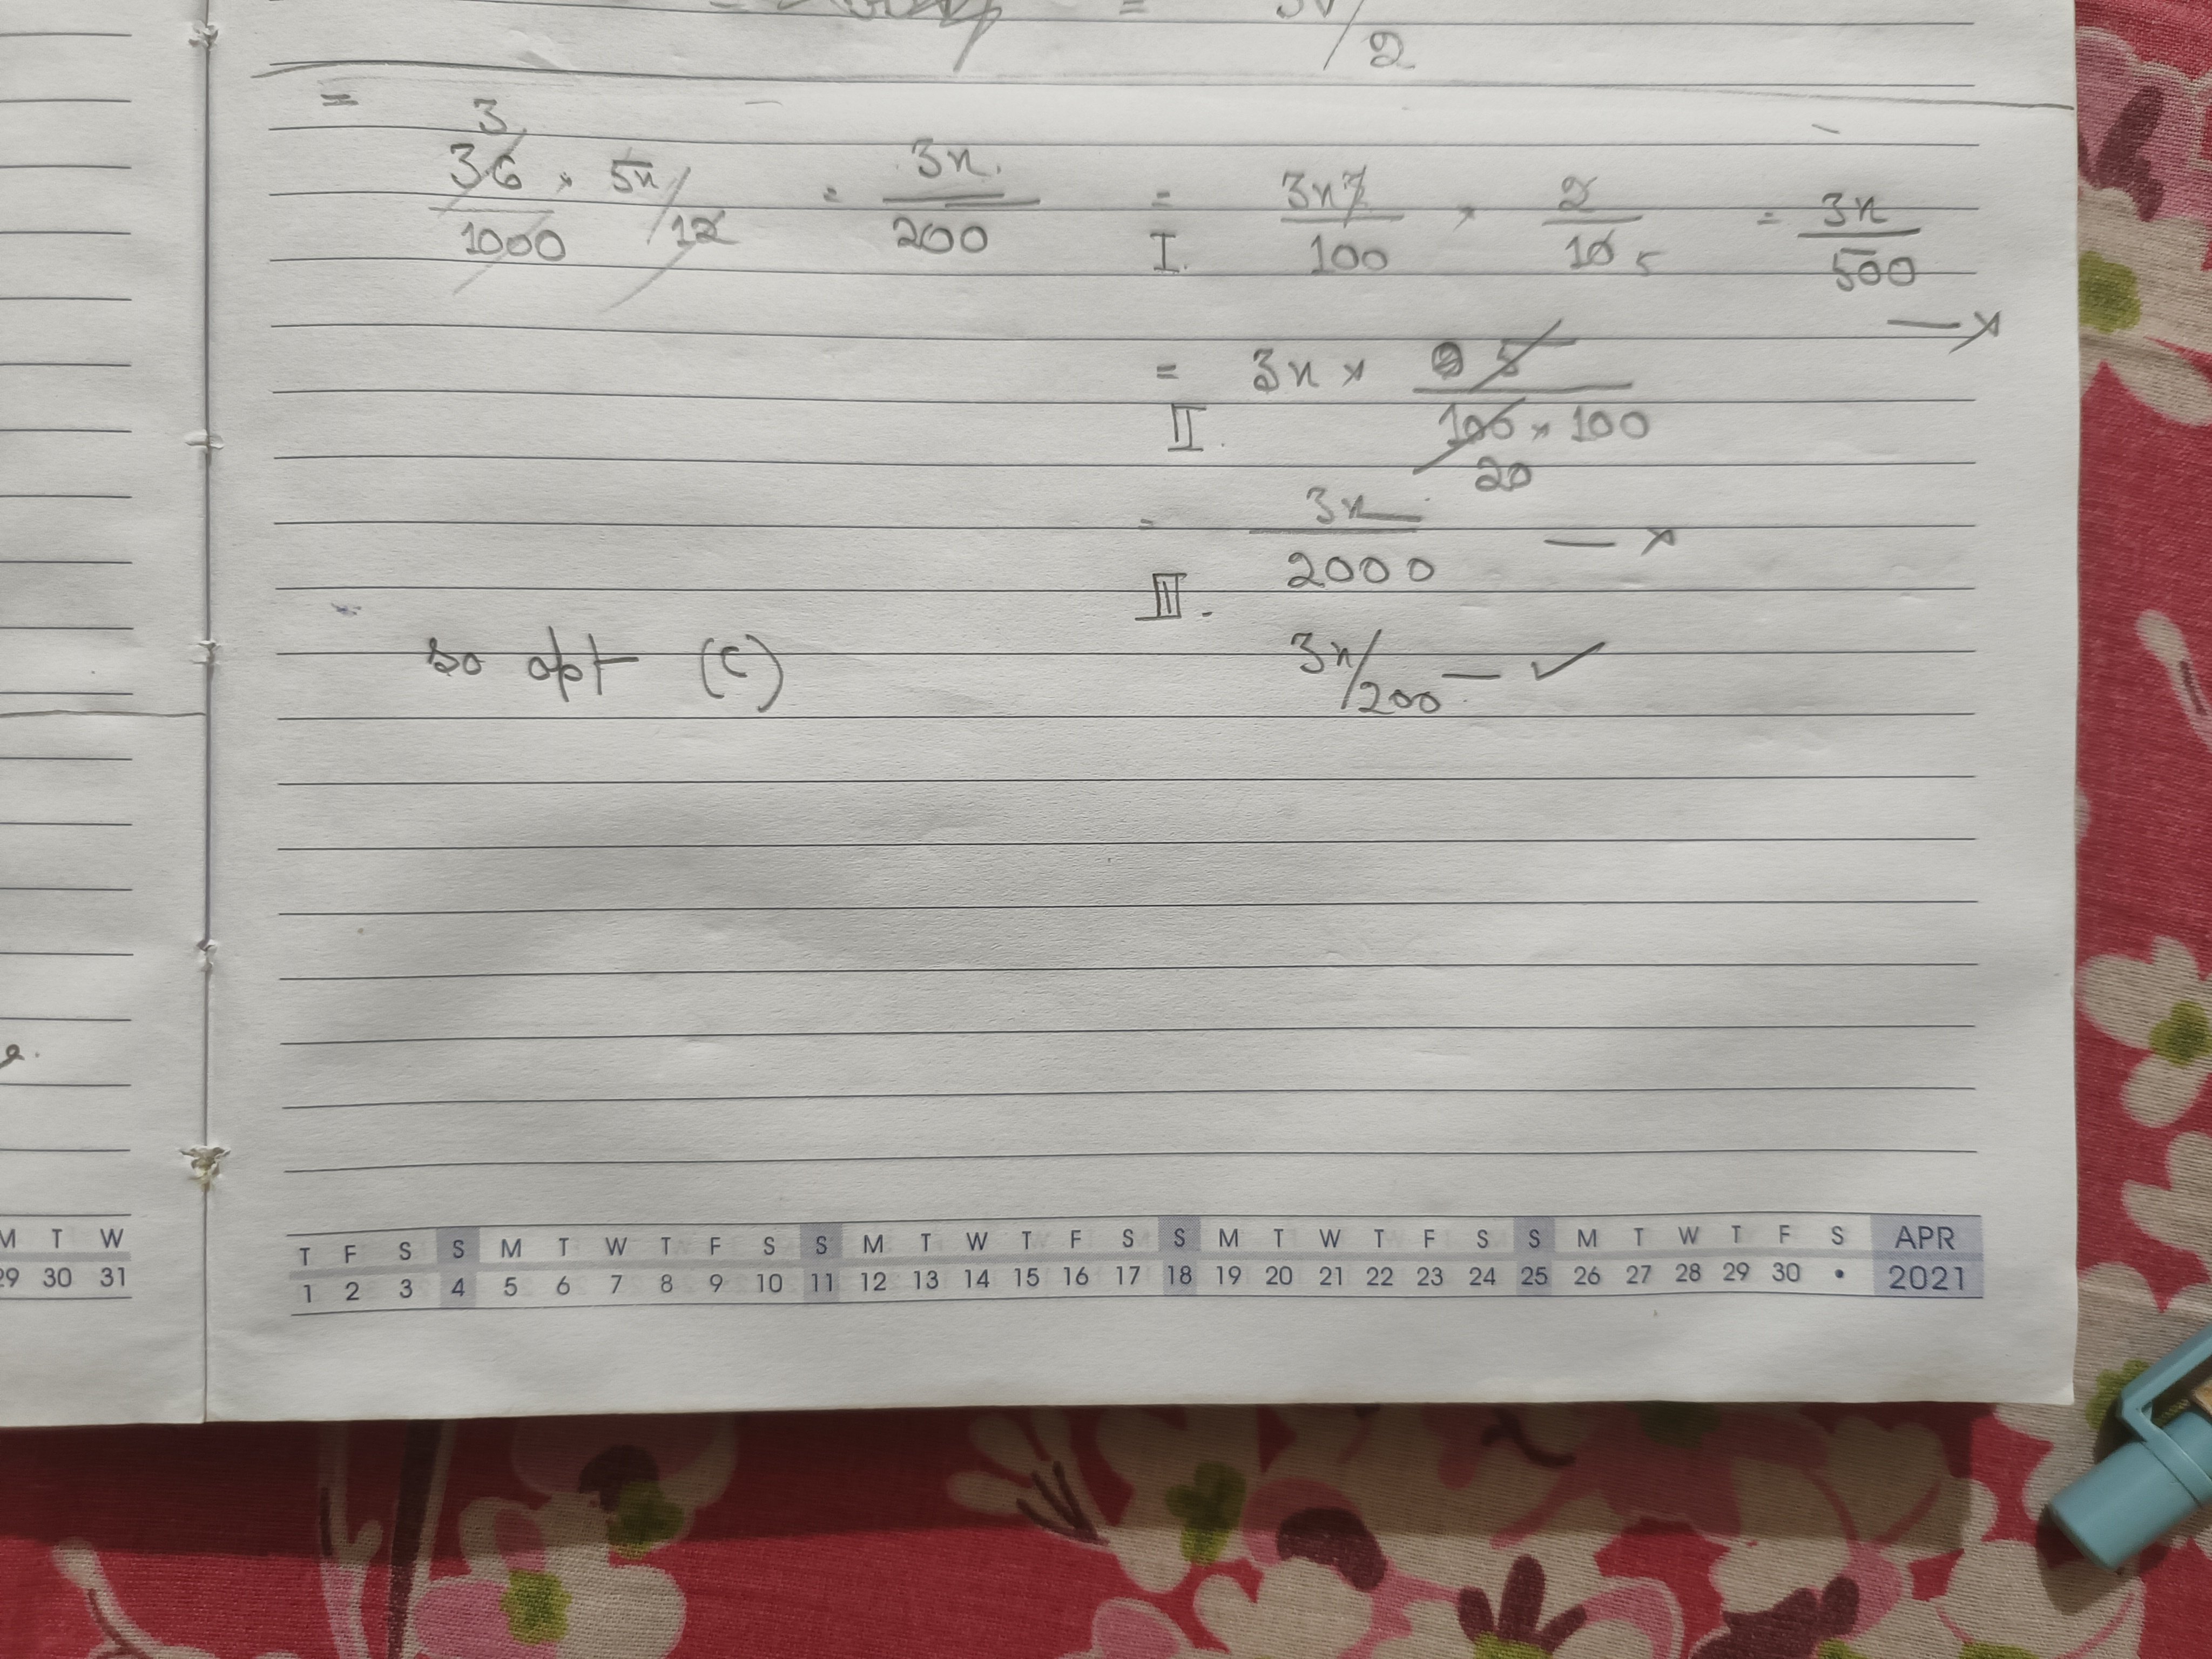 = 3V/2
= 3
36/1000 × 5x/12 = 3x/200 = 3x7/100 × 2/10 5 = 3x/500 — ×
I.
= 3x × 5/100 × 100
II. 20
= 3x/2000 — ×
III.
so opt (C) 3x/200 — ✓
M T W T F S S M T W T F S S M T W T F S S M T W T F S S M T W T F S APR
29 30 31 1 2 3 4 5 6 7 8 9 10 11 12 13 14 15 16 17 18 19 20 21 22 23 24 25 26 27 28 29 30 • 2021